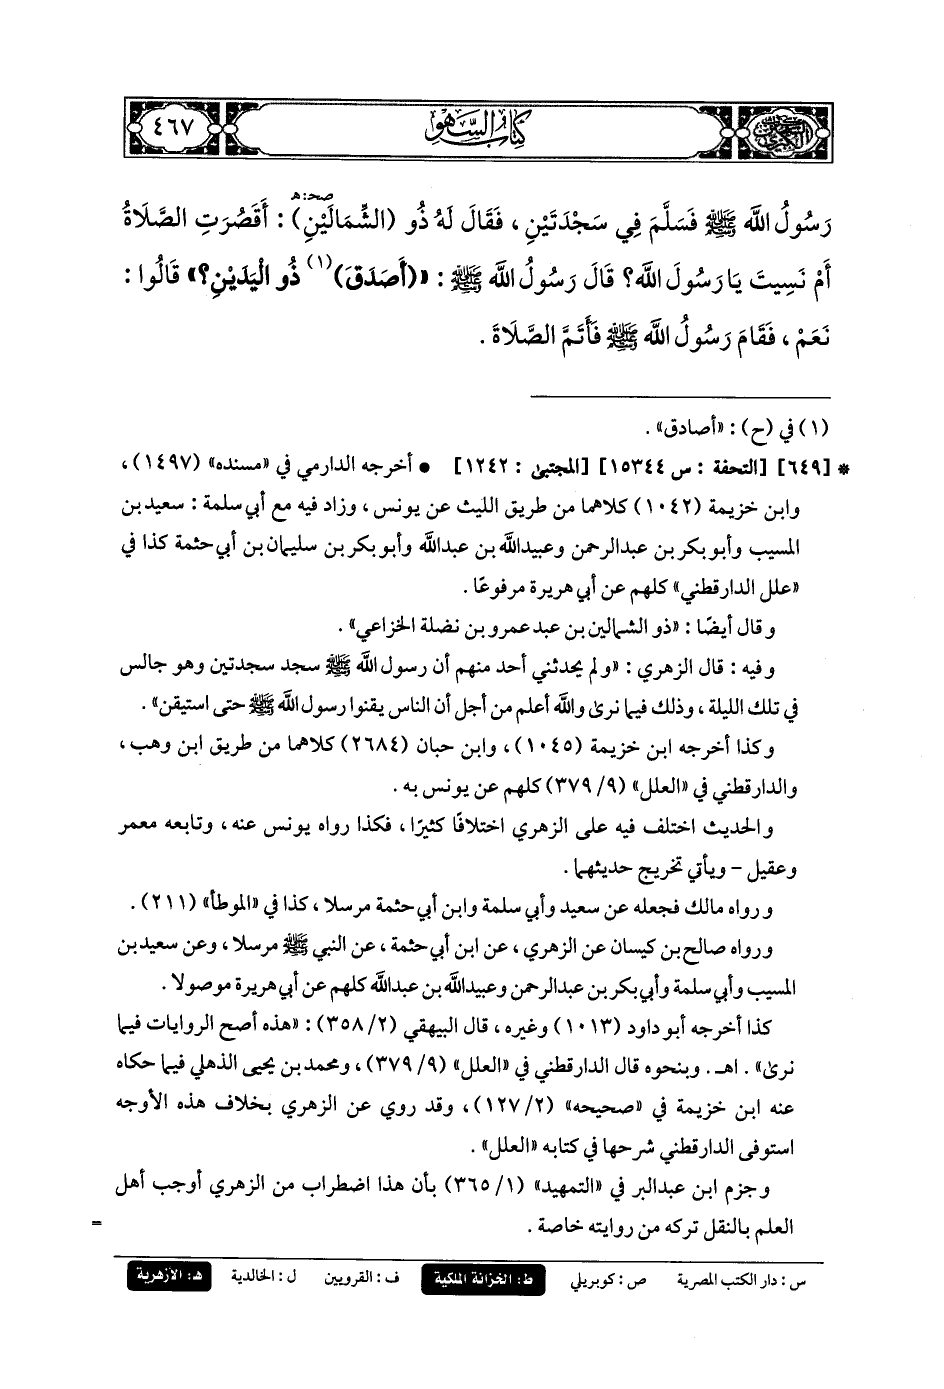 كتاب السهو
٤٦٧
صحـ: هـ
رَسُولُ اللَّه ﷺ فَسَلَّمَ فِي سَجْدَتَيْنِ ، فَقَالَ لَهُ ذُو (الشِّمَالَيْنِ) : أَقَصُرَتِ الصَّلَاةُ
أَمْ نَسِيتَ يَا رَسُولَ اللَّه؟ قَالَ رَسُولُ اللَّه ﷺ : «(أَصَدَقَ)(١) ذُو الْيَدَيْنِ؟» قَالُوا :
نَعَمْ ، فَقَامَ رَسُولُ اللَّه ﷺ فَأَتَمَّ الصَّلَاةَ .
(١) في (ح) : «أصادق» .
* [٦٤٩] [التحفة : س ١٥٣٤٤] [المجتبى : ١٢٤٢] • أخرجه الدارمي في «مسنده» (١٤٩٧) ،
وابن خزيمة (١٠٤٢) كلاهما من طريق الليث عن يونس ، وزاد فيه مع أبي سلمة : سعيد بن
المسيب وأبو بكر بن عبدالرحمن وعبيدالله بن عبدالله وأبو بكر بن سليمان بن أبي حثمة كذا في
«علل الدارقطني» كلهم عن أبي هريرة مرفوعًا .
وقال أيضًا : «ذو الشمالين بن عبد عمرو بن نضلة الخزاعي» .
وفيه : قال الزهري : «ولم يحدثني أحد منهم أن رسول الله ﷺ سجد سجدتين وهو جالس
في تلك الليلة ، وذلك فيما نرى والله أعلم من أجل أن الناس يقنوا رسول الله ﷺ حتى استيقن» .
وكذا أخرجه ابن خزيمة (١٠٤٥) ، وابن حبان (٢٦٨٤) كلاهما من طريق ابن وهب ،
والدارقطني في «العلل» (٩/ ٣٧٩) كلهم عن يونس به .
والحديث اختلف فيه على الزهري اختلافًا كثيرًا ، فكذا رواه يونس عنه ، وتابعه معمر
وعقيل - ويأتي تخريج حديثهما .
ورواه مالك فجعله عن سعيد وأبي سلمة وابن أبي حثمة مرسلا ، كذا في «الموطأ» (٢١١) .
ورواه صالح بن كيسان عن الزهري ، عن ابن أبي حثمة ، عن النبي ﷺ مرسلا ، وعن سعيد بن
المسيب وأبي سلمة وأبي بكر بن عبدالرحمن وعبيدالله بن عبدالله كلهم عن أبي هريرة موصولا .
كذا أخرجه أبو داود (١٠١٣) وغيره ، قال البيهقي (٢/ ٣٥٨) : «هذه أصح الروايات فيما
نرى» . اهـ . وبنحوه قال الدارقطني في «العلل» (٩/ ٣٧٩) ، ومحمد بن يحيى الذهلي فيما حكاه
عنه ابن خزيمة في «صحيحه» (٢/ ١٢٧) ، وقد روي عن الزهري بخلاف هذه الأوجه
استوفى الدارقطني شرحها في كتابه «العلل» .
وجزم ابن عبدالبر في «التمهيد» (١/ ٣٦٥) بأن هذا اضطراب من الزهري أوجب أهل
العلم بالنقل تركه من روايته خاصة .
=
س : دار الكتب المصرية ص : كوبريلي ط : الخزانة الملكية ف : القرويين ل : الخالدية هـ : الأزهرية